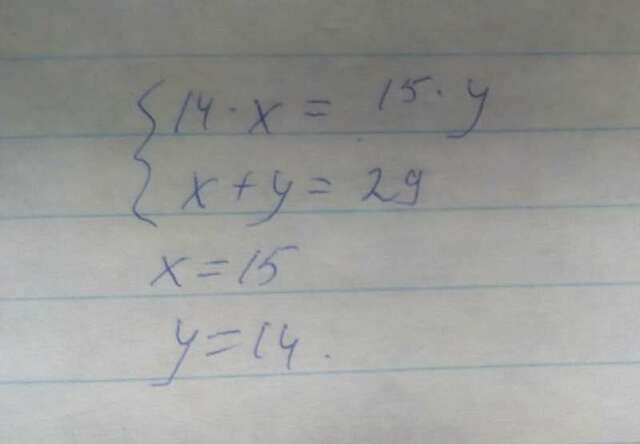 14 · x = 15 · y
x + y = 29
x = 15
y = 14.